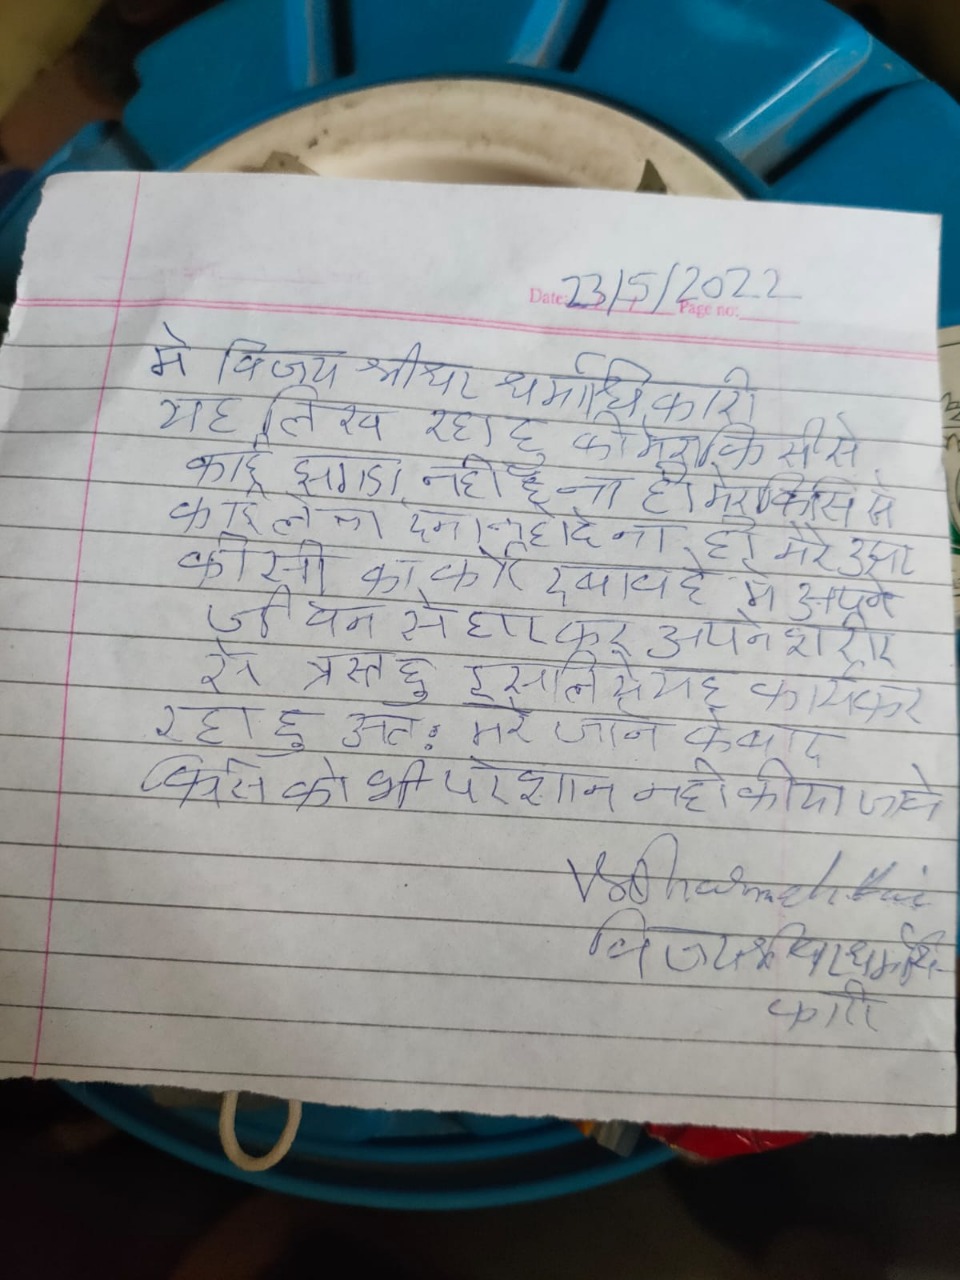 Date: 23/5/2022 Page no:
मे विजय श्रीधर धर्माधिकारी
यह लिख रहा हु की मेरा किसीसे
कोई झगडा नही है ना ही मेरा किसि से
कोई लेना देना है ना ही मेरे उपर
कीसी का कोई दबाव है मे अपने
जीवन से हार कर अपने शरीर
से त्रस्त हु इसलिये यह कार्य कर
रहा हु अतः मेरे जाने के बाद
किसि को भी परेशान नही कीया जाये
VSDharmadhikari
विजय श्रीधर धर्माधि-
कारी